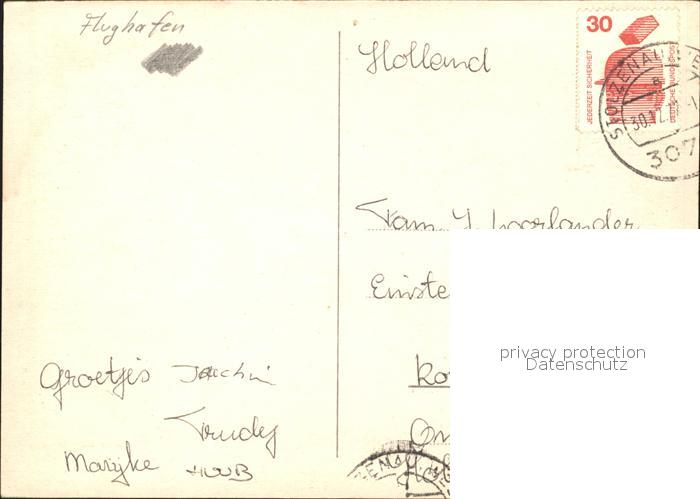 Flughafen
Holland
30
JEDERZEIT SICHERHEIT
DEUTSCHE BUNDESPOST
STOLZENAU
30.12.7
307
Fam. J. Noorlander
Einste
privacy protection
Datenschutz
Groetjes Joachim
Trudy
Marijke HUUB
ENAU